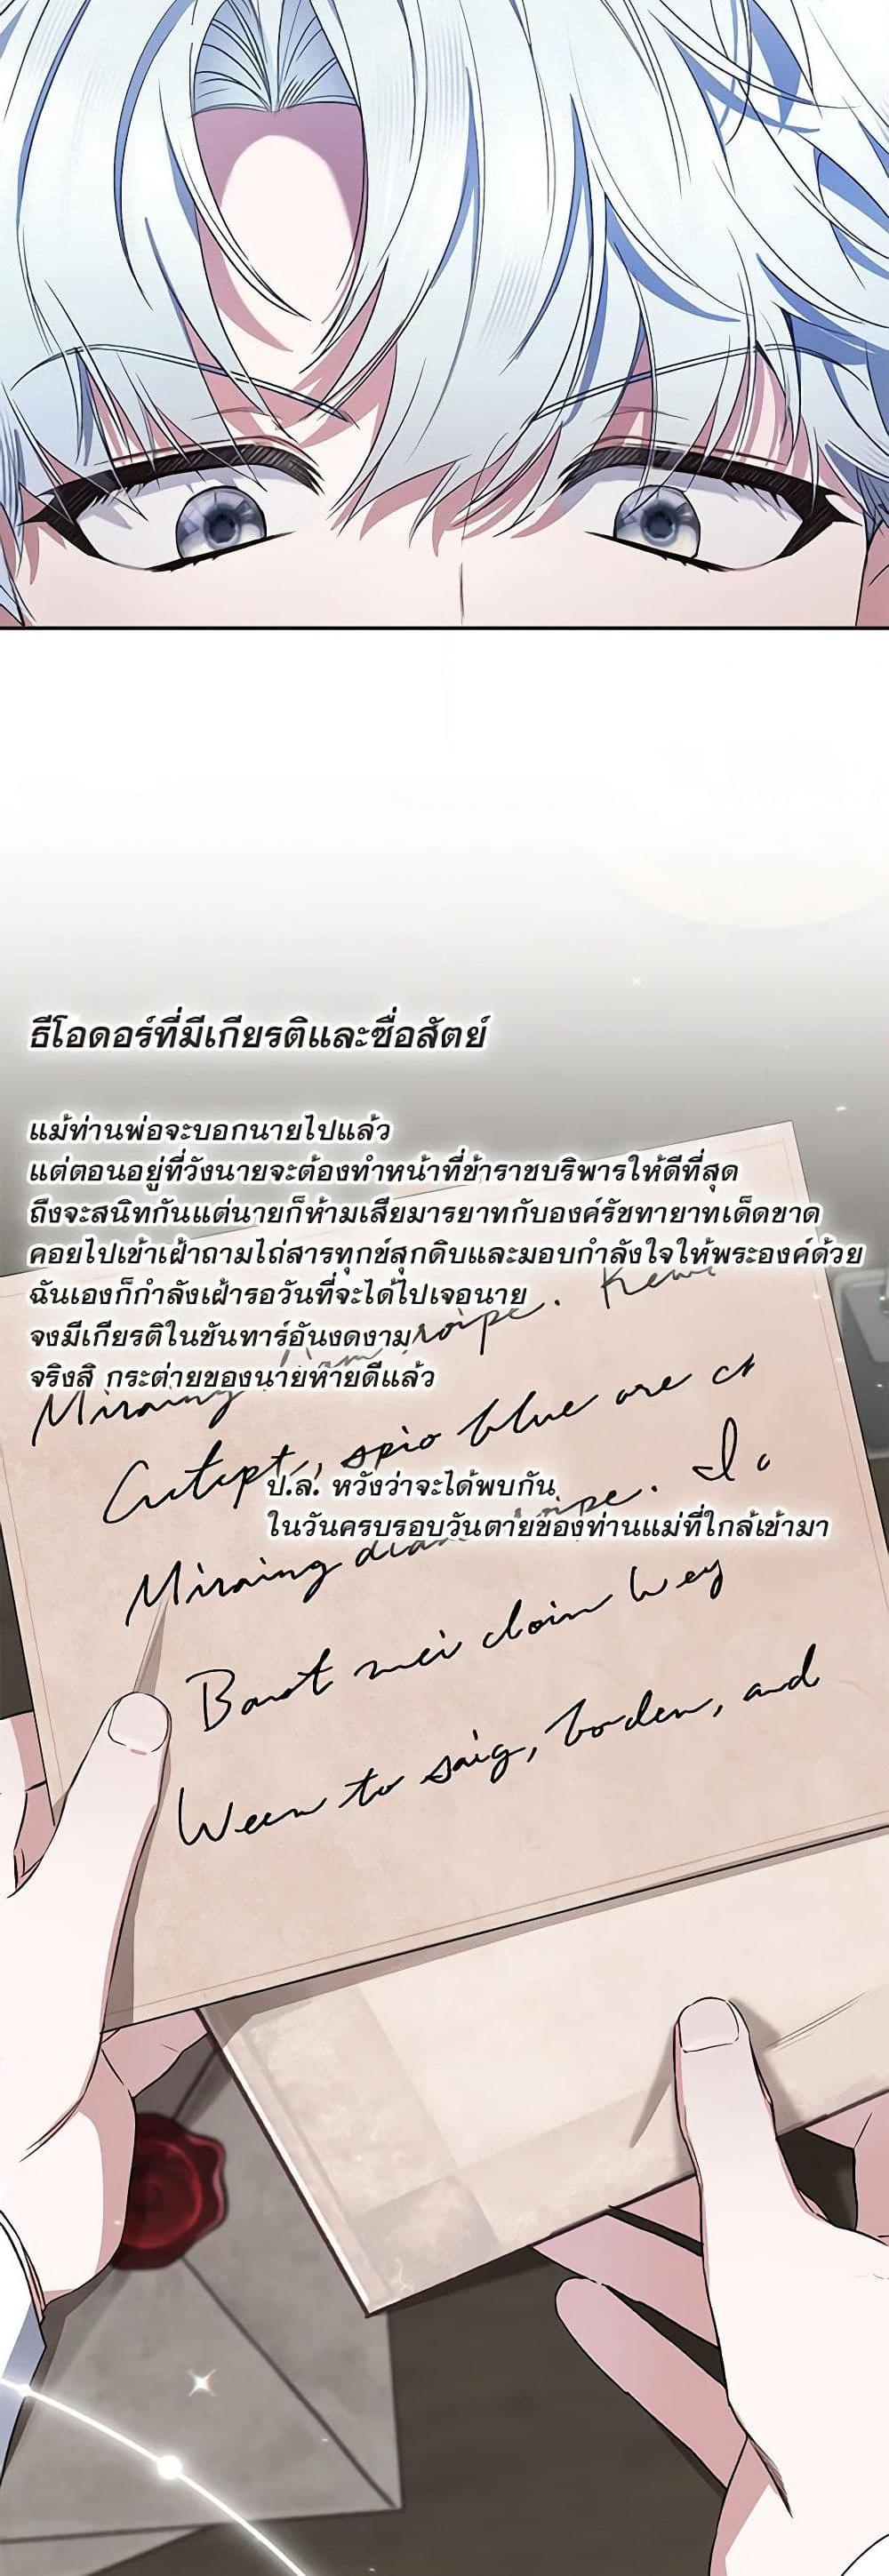 ธีโอดอร์ที่มีเกียรติและซื่อสัตย์
แม้ท่านพ่อจะบอกนายไปแล้ว
แต่ตอนอยู่ที่วังนายจะต้องทำหน้าที่ข้าราชบริพารให้ดีที่สุด
ถึงจะสนิทกันแต่นายก็ห้ามเสียมารยาทกับองค์รัชทายาทเด็ดขาด
คอยไปเข้าเฝ้าถามไถ่สารทุกข์สุกดิบและมอบกำลังใจให้พระองค์ด้วย
ฉันเองก็กำลังเฝ้ารอวันที่จะได้ไปเจอนาย
จงมีเกียรติในชันทาร์อันงดงาม
จริงสิ กระต่ายของนายหายดีแล้ว
Miraing
blue are
ป.ล. หวังว่าจะได้พบกัน
ในวันครบรอบวันตายของท่านแม่ที่ใกล้เข้ามา
Miraing
Ween to saig, boden, and